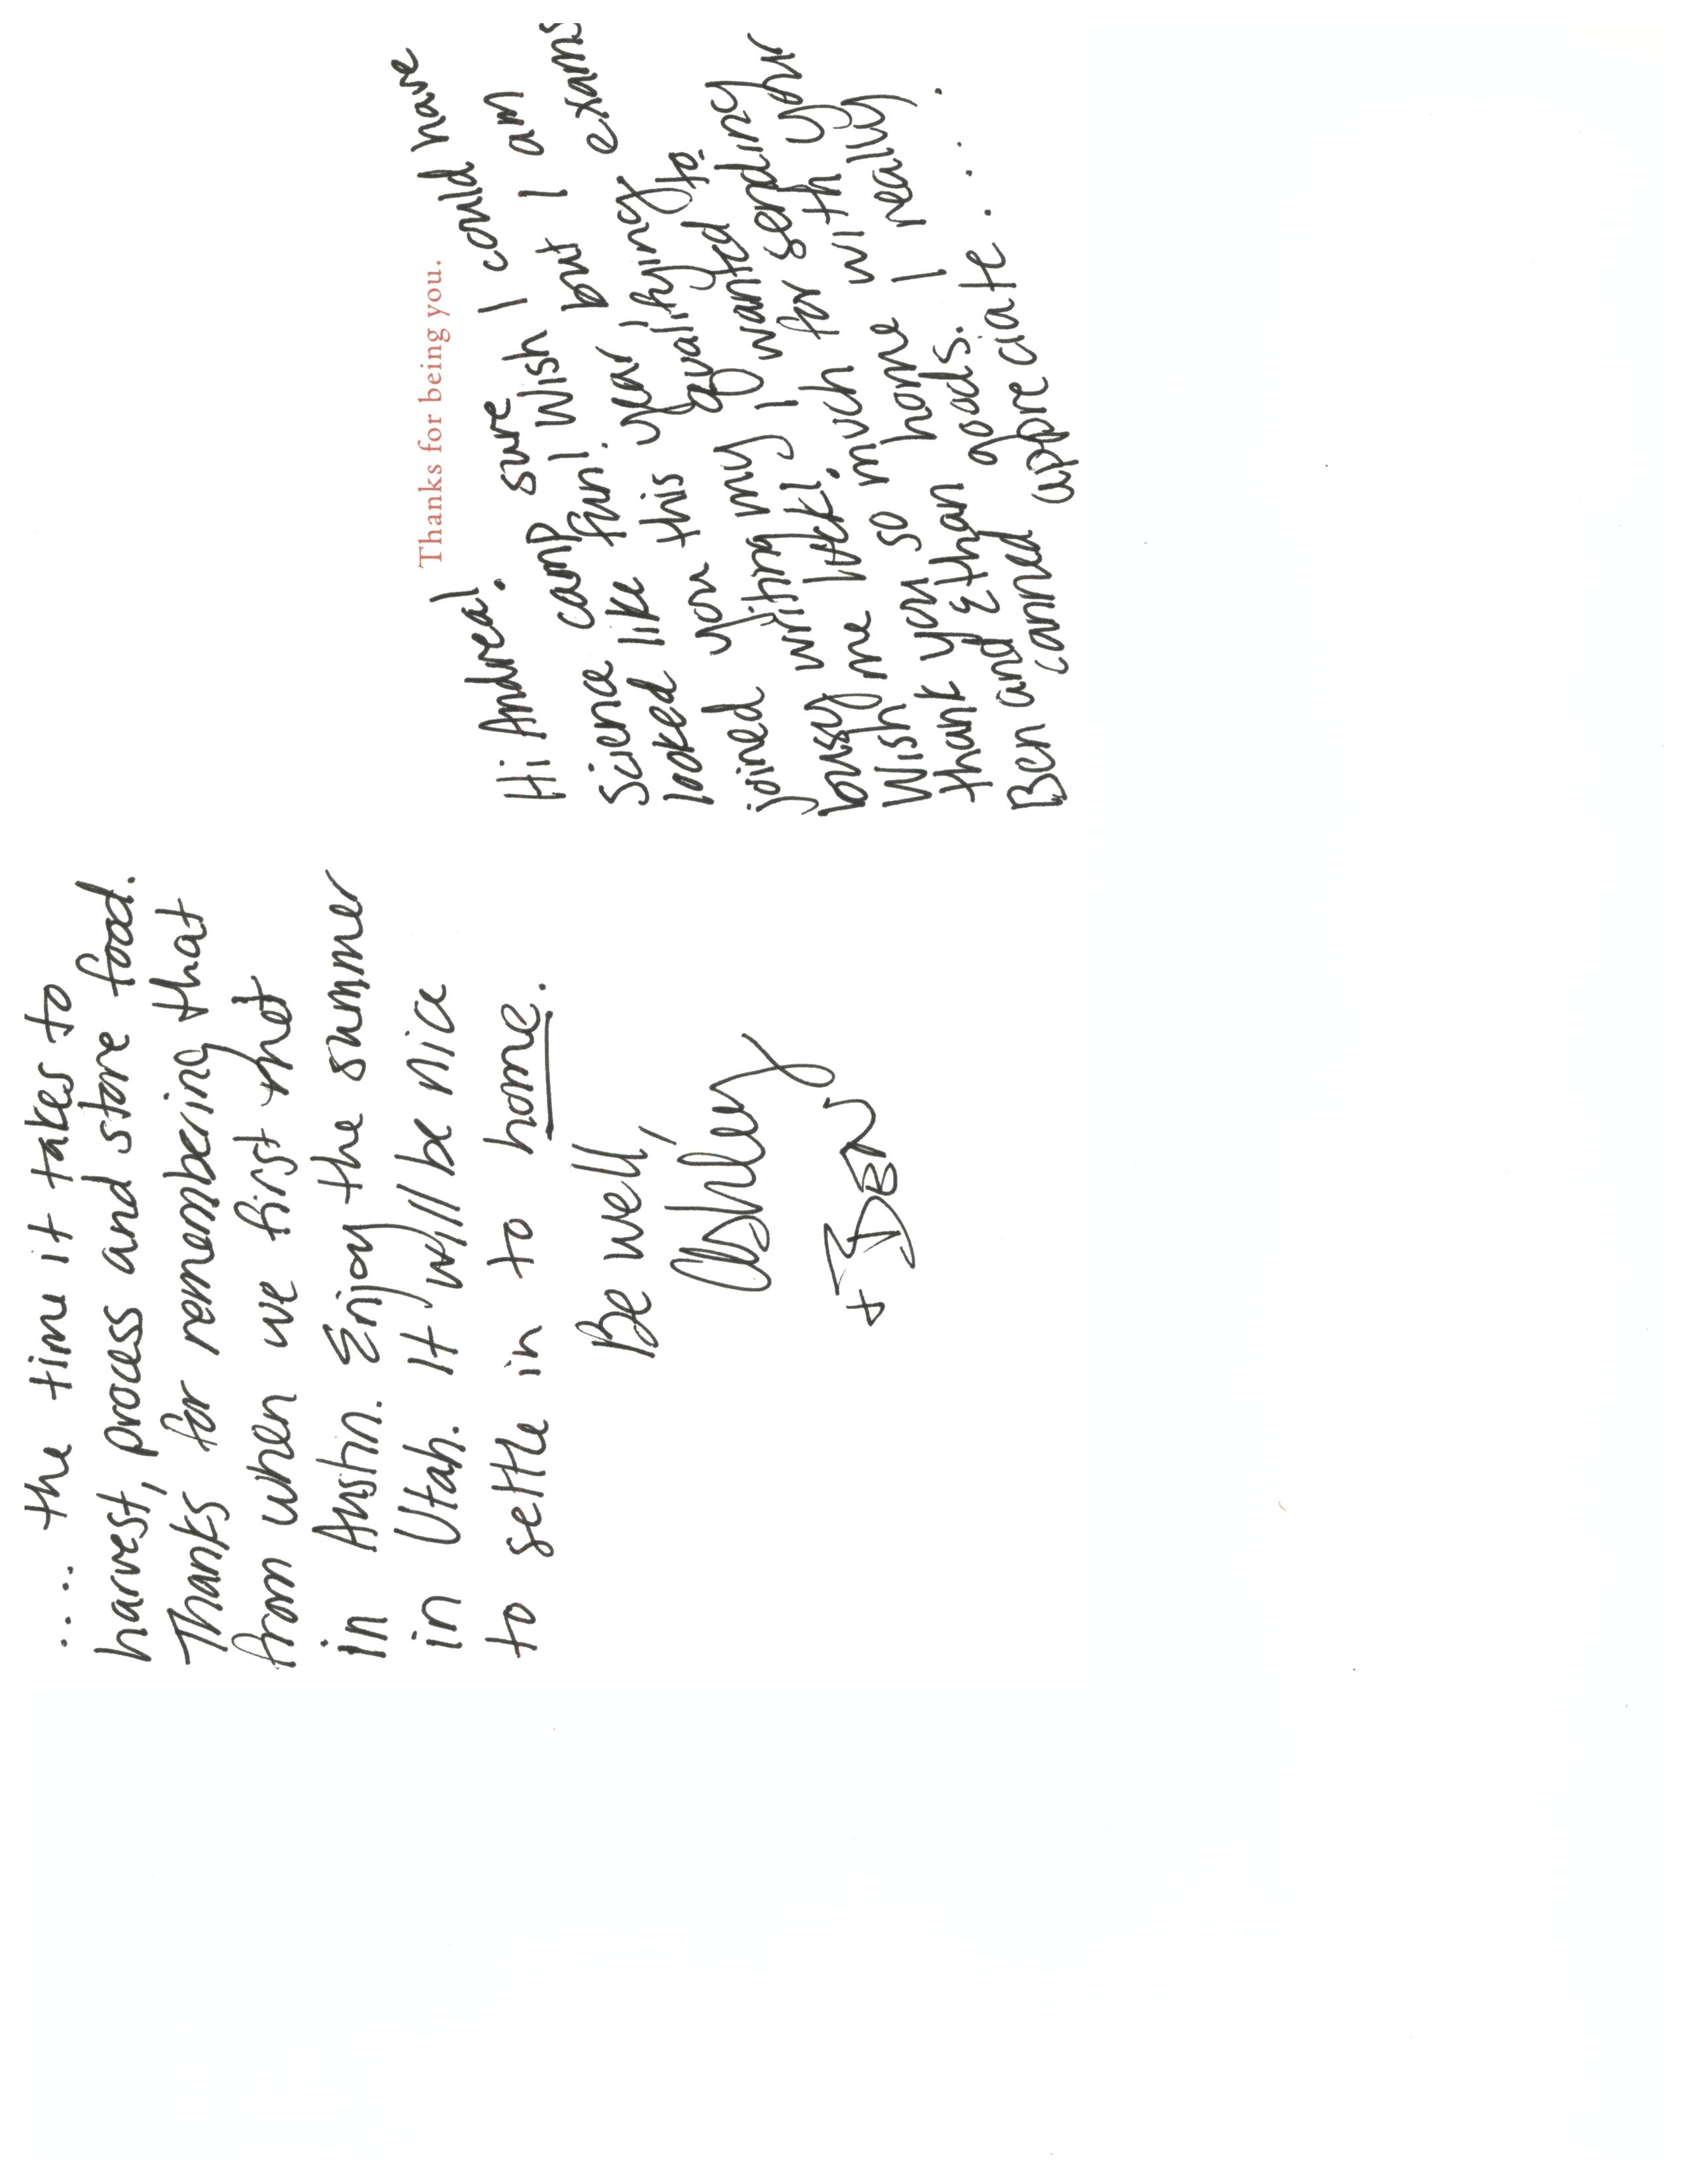 Thanks for being you.
Hi Andrea!
Science camp sure
looked like fun! Wish I could have
joined you this year, but I am
busy writing my qualifying exams
Wish me luck! I wanted to
thank you so much for sending
Ben and Ethan home with your
canned goods. I really
appreciate . . . .
. . . . the time it takes to
harvest, process and store food.
Thanks for remembering that
from when we first met
in Austin. Enjoy the summer
in Utah. It will be nice
to settle in to home.
Be well,
Ashley
+ BEN